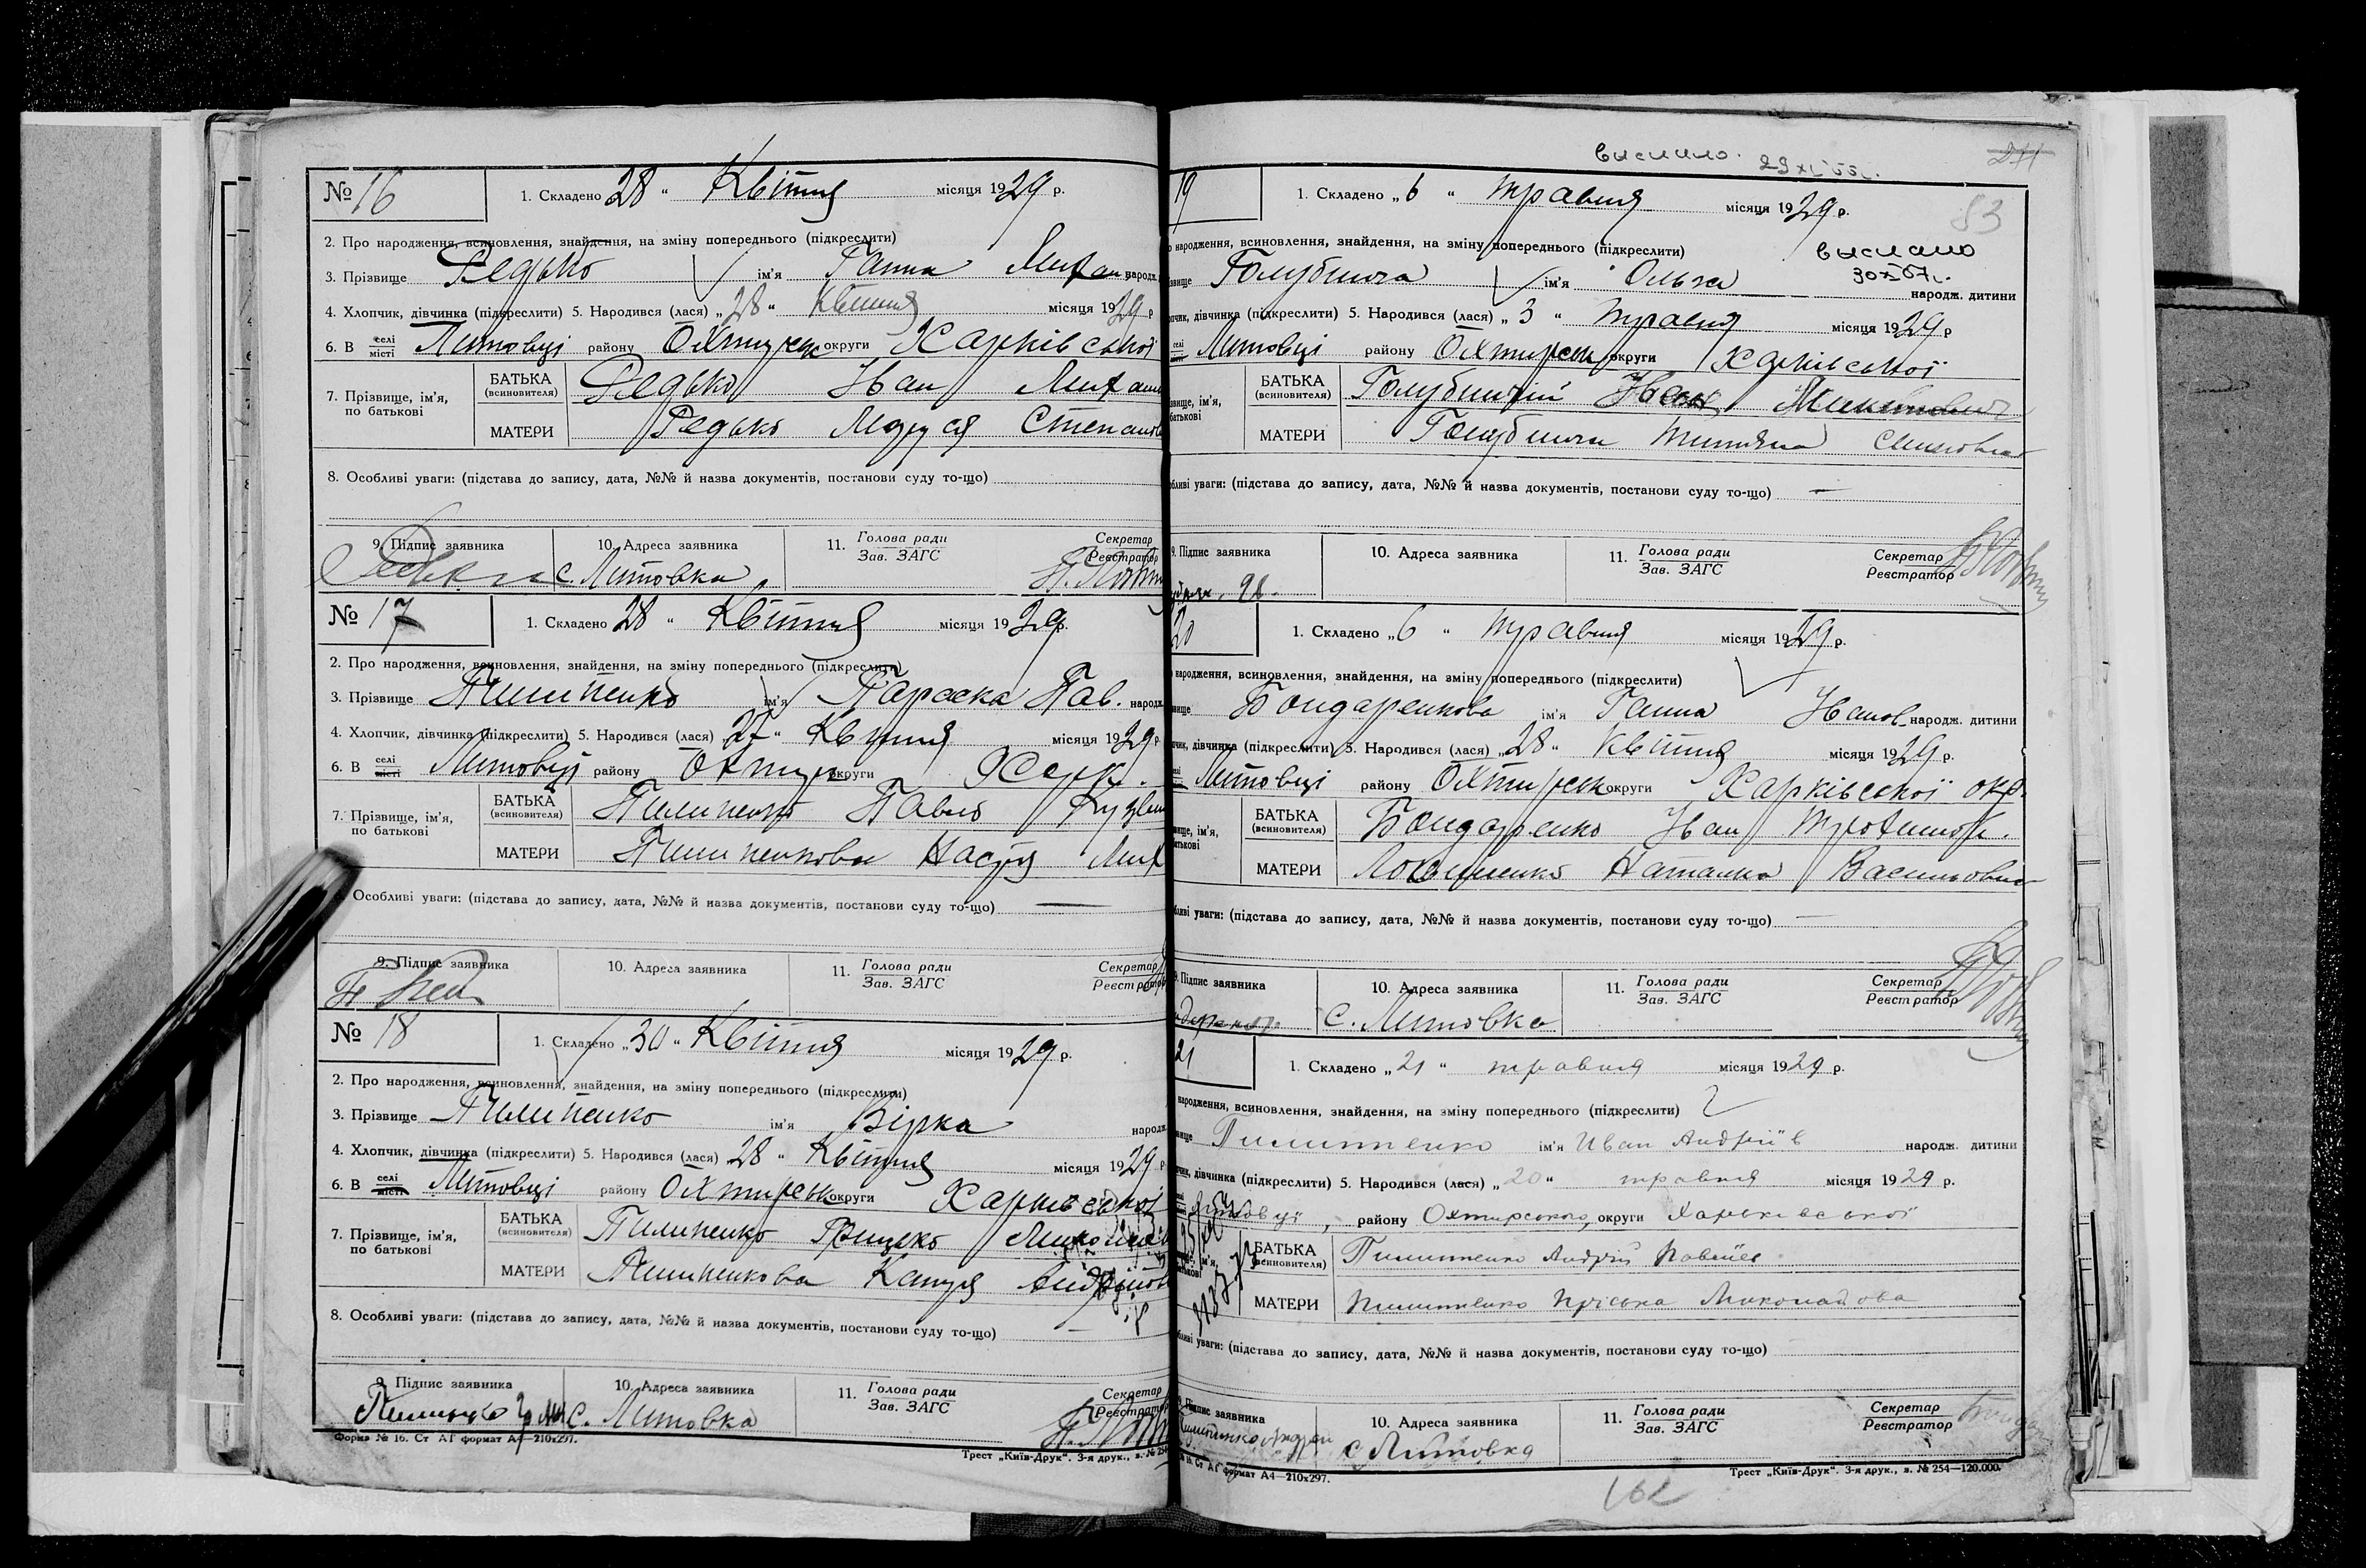 № 16
1. Складено 28 " Квітня місяця 1929 р.
2. Про народження, всиновлення, знайдення, на зміну попереднього (підкреслити)
3. Прізвище Редько ім'я Ганна Михай народж.
4. Хлопчик, дівчинка (підкреслити) 5. Народився (лася) „28 " Квітня місяця 1929 р
6. В селі місті Литовці району Охтирськ округи Харківської
7. Прізвище, ім'я, по батькові
БАТЬКА (всиновителя) Редько Іван Миха
МАТЕРИ Редько Маруся Степанов
8. Особливі уваги: (підстава до запису, дата, №№ й назва документів, постанови суду то-що)
9. Підпис заявника 10. Адреса заявника 11. Голова ради Зав. ЗАГС Секретар Реєстратор
с. Литовка
№ 17
1. Складено 28 " Квітня місяця 1929 р.
2. Про народження, всиновлення, знайдення, на зміну попереднього (підкреслити)
3. Прізвище Пилипенко ім'я Параска Пав. народж.
4. Хлопчик, дівчинка (підкреслити) 5. Народився (лася) 27 " Квітня місяця 1929 р
6. В селі місті Литовці району Охтирськ округи Харк.
7. Прізвище, ім'я, по батькові
БАТЬКА (всиновителя) Пилипенко Павло Кузьм
МАТЕРИ Пилипенкова Настя Мих
Особливі уваги: (підстава до запису, дата, №№ й назва документів, постанови суду то-що) —
9. Підпис заявника 10. Адреса заявника 11. Голова ради Зав. ЗАГС Секретар Реєстратор
№ 18
1. Складено „30 " Квітня місяця 1929 р.
2. Про народження, всиновлення, знайдення, на зміну попереднього (підкреслити)
3. Прізвище Пилипенко ім'я Вірка народж.
4. Хлопчик, дівчинка (підкреслити) 5. Народився (лася) 28 " Квітня місяця 1929 р
6. В селі місті Литовці району Охтирськ округи Харківської
7. Прізвище, ім'я, по батькові
БАТЬКА (всиновителя) Пилипенко Грицько Микола
МАТЕРИ Пилипенкова Катря Андрійов
8. Особливі уваги: (підстава до запису, дата, №№ й назва документів, постанови суду то-що) —
9. Підпис заявника 10. Адреса заявника 11. Голова ради Зав. ЗАГС Секретар Реєстратор
с. Литовка
Форма № 16. Ст АГ формат А4—210х297.
Трест „Київ-Друк". 3-я друк., з. № 254
выслано. 29 XI 55г.
83
19
1. Складено „6 " травня місяця 1929 р.
народження, всиновлення, знайдення, на зміну попереднього (підкреслити)
выслано
30 X 67г.
звище Голубнича ім'я Ольга народж. дитини
пчик, дівчинка (підкреслити) 5. Народився (лася) „3 " травня місяця 1929 р
Литовці району Охтирськ округи Харківської
звище, ім'я, батькові
БАТЬКА (всиновителя) Голубничій Іван Микитович
МАТЕРИ Голубнича Титяна
бливі уваги: (підстава до запису, дата, №№ й назва документів, постанови суду то-що) —
9. Підпис заявника 10. Адреса заявника 11. Голова ради Зав. ЗАГС Секретар Реєстратор
20
1. Складено „6 " травня місяця 1929 р.
народження, всиновлення, знайдення, на зміну попереднього (підкреслити)
вище Бондаренкова ім'я Ганна Іванов. народж. дитини
пчик, дівчинка (підкреслити) 5. Народився (лася) „28 " Квітня місяця 1929 р.
Литовці району Охтирськ округи Харківської окр.
вище, ім'я, атькові
БАТЬКА (всиновителя) Бондаренко Іван Трохимов.
МАТЕРИ Наталка Васильовна
бливі уваги: (підстава до запису, дата, №№ й назва документів, постанови суду то-що) —
9. Підпис заявника 10. Адреса заявника 11. Голова ради Зав. ЗАГС Секретар Реєстратор
с. Литовка
21
1. Складено „21 " травня місяця 1929 р.
народження, всиновлення, знайдення, на зміну попереднього (підкреслити)
вище Пилипенко ім'я Иван Андріїв народж. дитини
чик, дівчинка (підкреслити) 5. Народився (лася) „20 " травня місяця 1929 р.
Литовці, району Охтирського, округи Харьківської
БАТЬКА (всиновителя) Пилипенко Андрій Павлів
МАТЕРИ Пилипенко Пріська Миколайова
бливі уваги: (підстава до запису, дата, №№ й назва документів, постанови суду то-що)
Підпис заявника 10. Адреса заявника 11. Голова ради Зав. ЗАГС Секретар Реєстратор
с Литовка
16. Ст АГ формат А4—210х297.
Трест „Київ-Друк". 3-я друк., з. № 254—120.000.